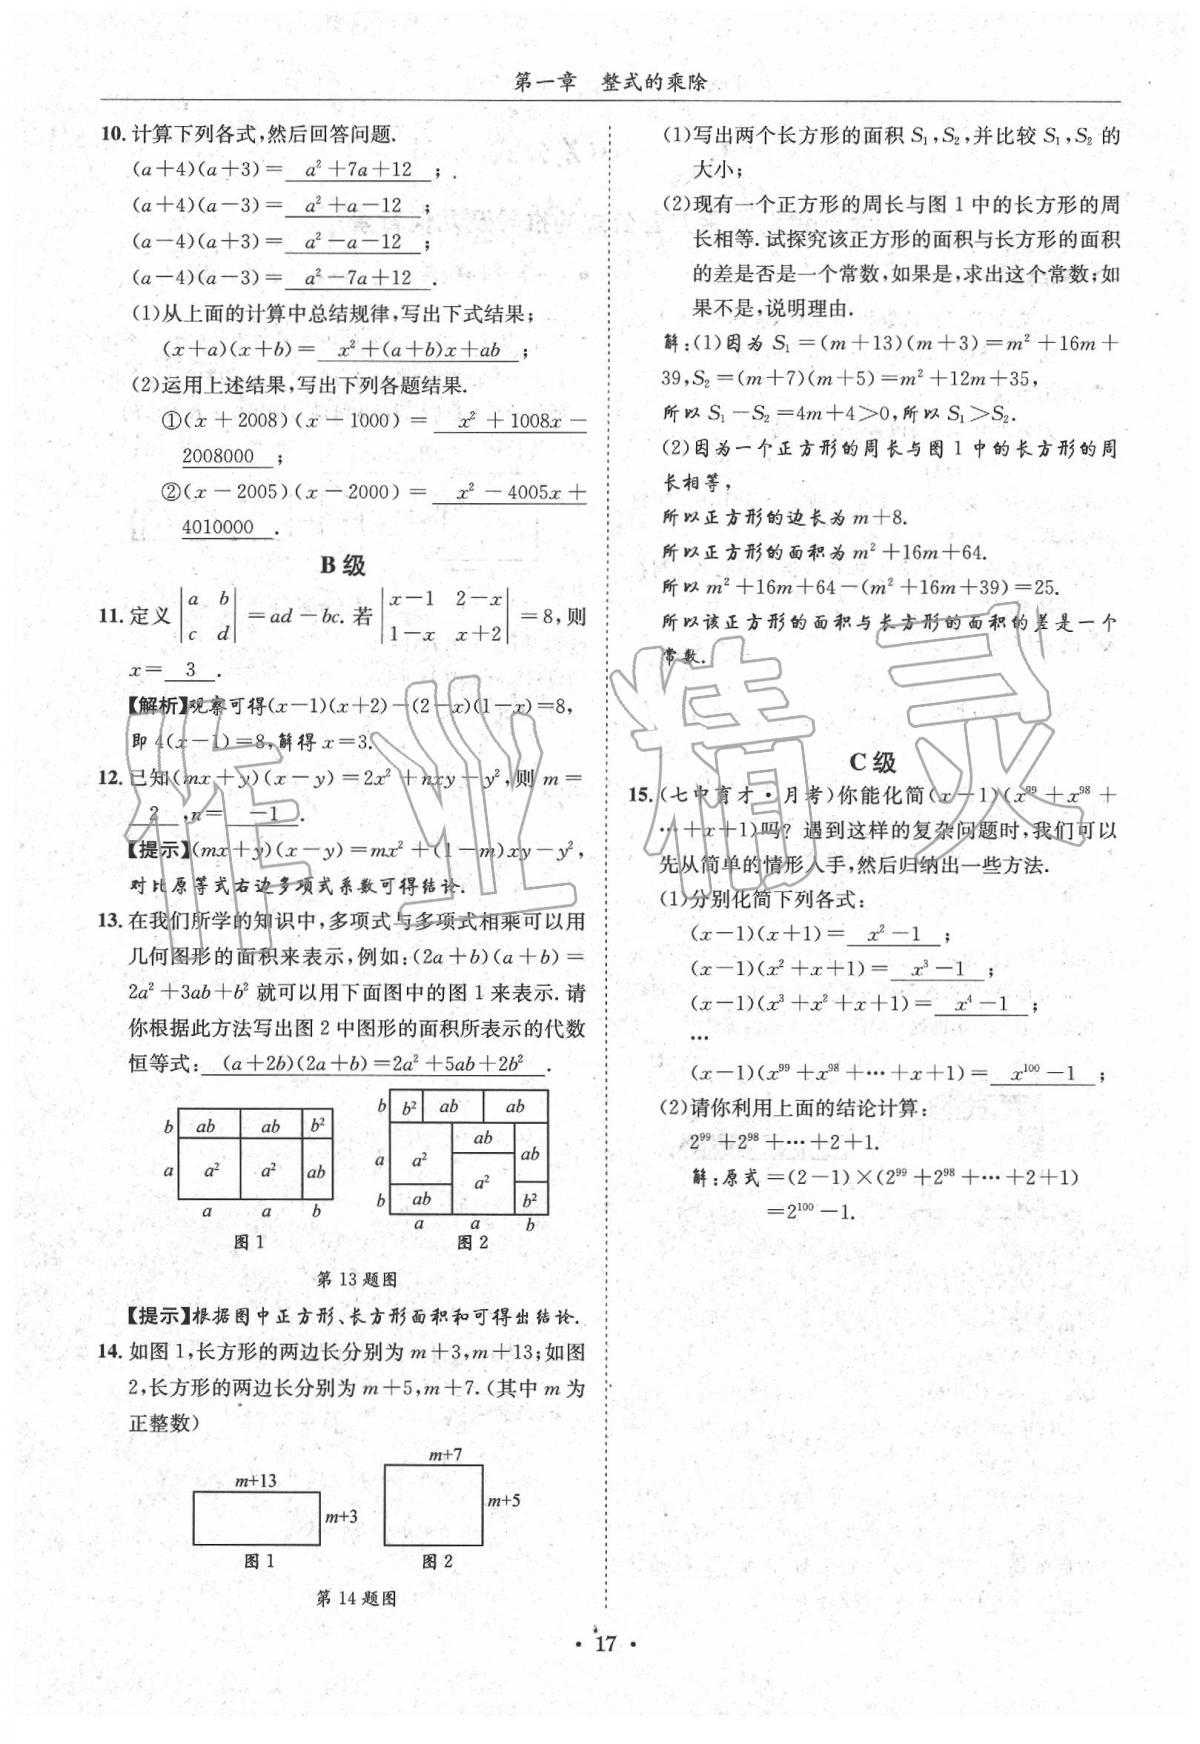 第一章 整式的乘除
10. 计算下列各式,然后回答问题.
(a+4)(a+3)= a²+7a+12 ;
(a+4)(a-3)= a²+a-12 ;
(a-4)(a+3)= a²-a-12 ;
(a-4)(a-3)= a²-7a+12 .
(1)从上面的计算中总结规律,写出下式结果;
(x+a)(x+b)= x²+(a+b)x+ab ;
(2)运用上述结果,写出下列各题结果.
①(x+2008)(x-1000)= x²+1008x-
2008000 ;
②(x-2005)(x-2000)= x²-4005x+
4010000 .
B 级
11. 定义 |a b| =ad-bc. 若 |x-1 2-x| =8,则
|c d| |1-x x+2|
x= 3 .
【解析】观察可得(x-1)(x+2)-(2-x)(1-x)=8,
即 4(x-1)=8,解得 x=3.
12. 已知(mx+y)(x-y)=2x²+nxy-y²,则 m=
2 ,n= -1 .
【提示】(mx+y)(x-y)=mx²+(1-m)xy-y²,
对比原等式右边多项式系数可得结论.
13. 在我们所学的知识中,多项式与多项式相乘可以用
几何图形的面积来表示,例如:(2a+b)(a+b)=
2a²+3ab+b² 就可以用下面图中的图 1 来表示. 请
你根据此方法写出图 2 中图形的面积所表示的代数
恒等式: (a+2b)(2a+b)=2a²+5ab+2b² .
b ab ab b²
a a² a² ab
a a b
图 1
b b² ab ab
ab
a a² ab
a²
b ab b²
a a b
图 2
第 13 题图
【提示】根据图中正方形、长方形面积和可得出结论.
14. 如图 1,长方形的两边长分别为 m+3,m+13;如图
2,长方形的两边长分别为 m+5,m+7.(其中 m 为
正整数)
m+13
m+3
图 1
m+7
m+5
图 2
第 14 题图
(1)写出两个长方形的面积 S₁,S₂,并比较 S₁,S₂ 的
大小;
(2)现有一个正方形的周长与图 1 中的长方形的周
长相等. 试探究该正方形的面积与长方形的面积
的差是否是一个常数,如果是,求出这个常数;如
果不是,说明理由.
解:(1)因为 S₁=(m+13)(m+3)=m²+16m+
39,S₂=(m+7)(m+5)=m²+12m+35,
所以 S₁-S₂=4m+4>0,所以 S₁>S₂.
(2)因为一个正方形的周长与图 1 中的长方形的周
长相等,
所以正方形的边长为 m+8.
所以正方形的面积为 m²+16m+64.
所以 m²+16m+64-(m²+16m+39)=25.
所以该正方形的面积与长方形的面积的差是一个
常数.
C 级
15. (七中育才·月考)你能化简(x-1)(x⁹⁹+x⁹⁸+
…+x+1)吗? 遇到这样的复杂问题时,我们可以
先从简单的情形入手,然后归纳出一些方法.
(1)分别化简下列各式:
(x-1)(x+1)= x²-1 ;
(x-1)(x²+x+1)= x³-1 ;
(x-1)(x³+x²+x+1)= x⁴-1 ;
…
(x-1)(x⁹⁹+x⁹⁸+…+x+1)= x¹⁰⁰-1 ;
(2)请你利用上面的结论计算:
2⁹⁹+2⁹⁸+…+2+1.
解:原式=(2-1)×(2⁹⁹+2⁹⁸+…+2+1)
=2¹⁰⁰-1.
作业精灵
· 17 ·